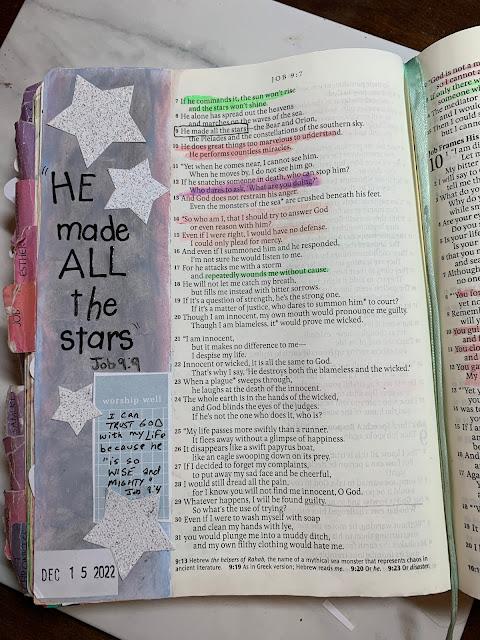 JOB 9:7
"HE
made
ALL
the
stars"
Job 9:9
worship well
I can
TRUST GOD
with my Life
because he
"is so
WISE and
MIGHTY"
Job 9:4
DEC 15 2022
ESTHER
JOB
7 If he commands it, the sun won't rise
and the stars won't shine.
8 He alone has spread out the heavens
and marches on the waves of the sea.
9 He made all the stars—the Bear and Orion,
the Pleiades and the constellations of the southern sky.
10 He does great things too marvelous to understand.
He performs countless miracles.
11 "Yet when he comes near, I cannot see him.
When he moves by, I do not see him go.
12 If he snatches someone in death, who can stop him?
Who dares to ask, 'What are you doing?'
13 And God does not restrain his anger.
Even the monsters of the sea* are crushed beneath his feet.
14 "So who am I, that I should try to answer God
or even reason with him?
15 Even if I were right, I would have no defense.
I could only plead for mercy.
16 And even if I summoned him and he responded,
I'm not sure he would listen to me.
17 For he attacks me with a storm
and repeatedly wounds me without cause.
18 He will not let me catch my breath,
but fills me instead with bitter sorrows.
19 If it's a question of strength, he's the strong one.
If it's a matter of justice, who dares to summon him* to court?
20 Though I am innocent, my own mouth would pronounce me guilty.
Though I am blameless, it* would prove me wicked.
21 "I am innocent,
but it makes no difference to me—
I despise my life.
22 Innocent or wicked, it is all the same to God.
That's why I say, 'He destroys both the blameless and the wicked.'
23 When a plague* sweeps through,
he laughs at the death of the innocent.
24 The whole earth is in the hands of the wicked,
and God blinds the eyes of the judges.
If he's not the one who does it, who is?
25 "My life passes more swiftly than a runner.
It flees away without a glimpse of happiness.
26 It disappears like a swift papyrus boat,
like an eagle swooping down on its prey.
27 If I decided to forget my complaints,
to put away my sad face and be cheerful,
28 I would still dread all the pain,
for I know you will not find me innocent, O God.
29 Whatever happens, I will be found guilty.
So what's the use of trying?
30 Even if I were to wash myself with soap
and clean my hands with lye,
31 you would plunge me into a muddy ditch,
and my own filthy clothing would hate me.
9:13 Hebrew the helpers of Rahab, the name of a mythical sea monster that represents chaos in
ancient literature. 9:19 As in Greek version; Hebrew reads me. 9:20 Or he. 9:23 Or disaster.